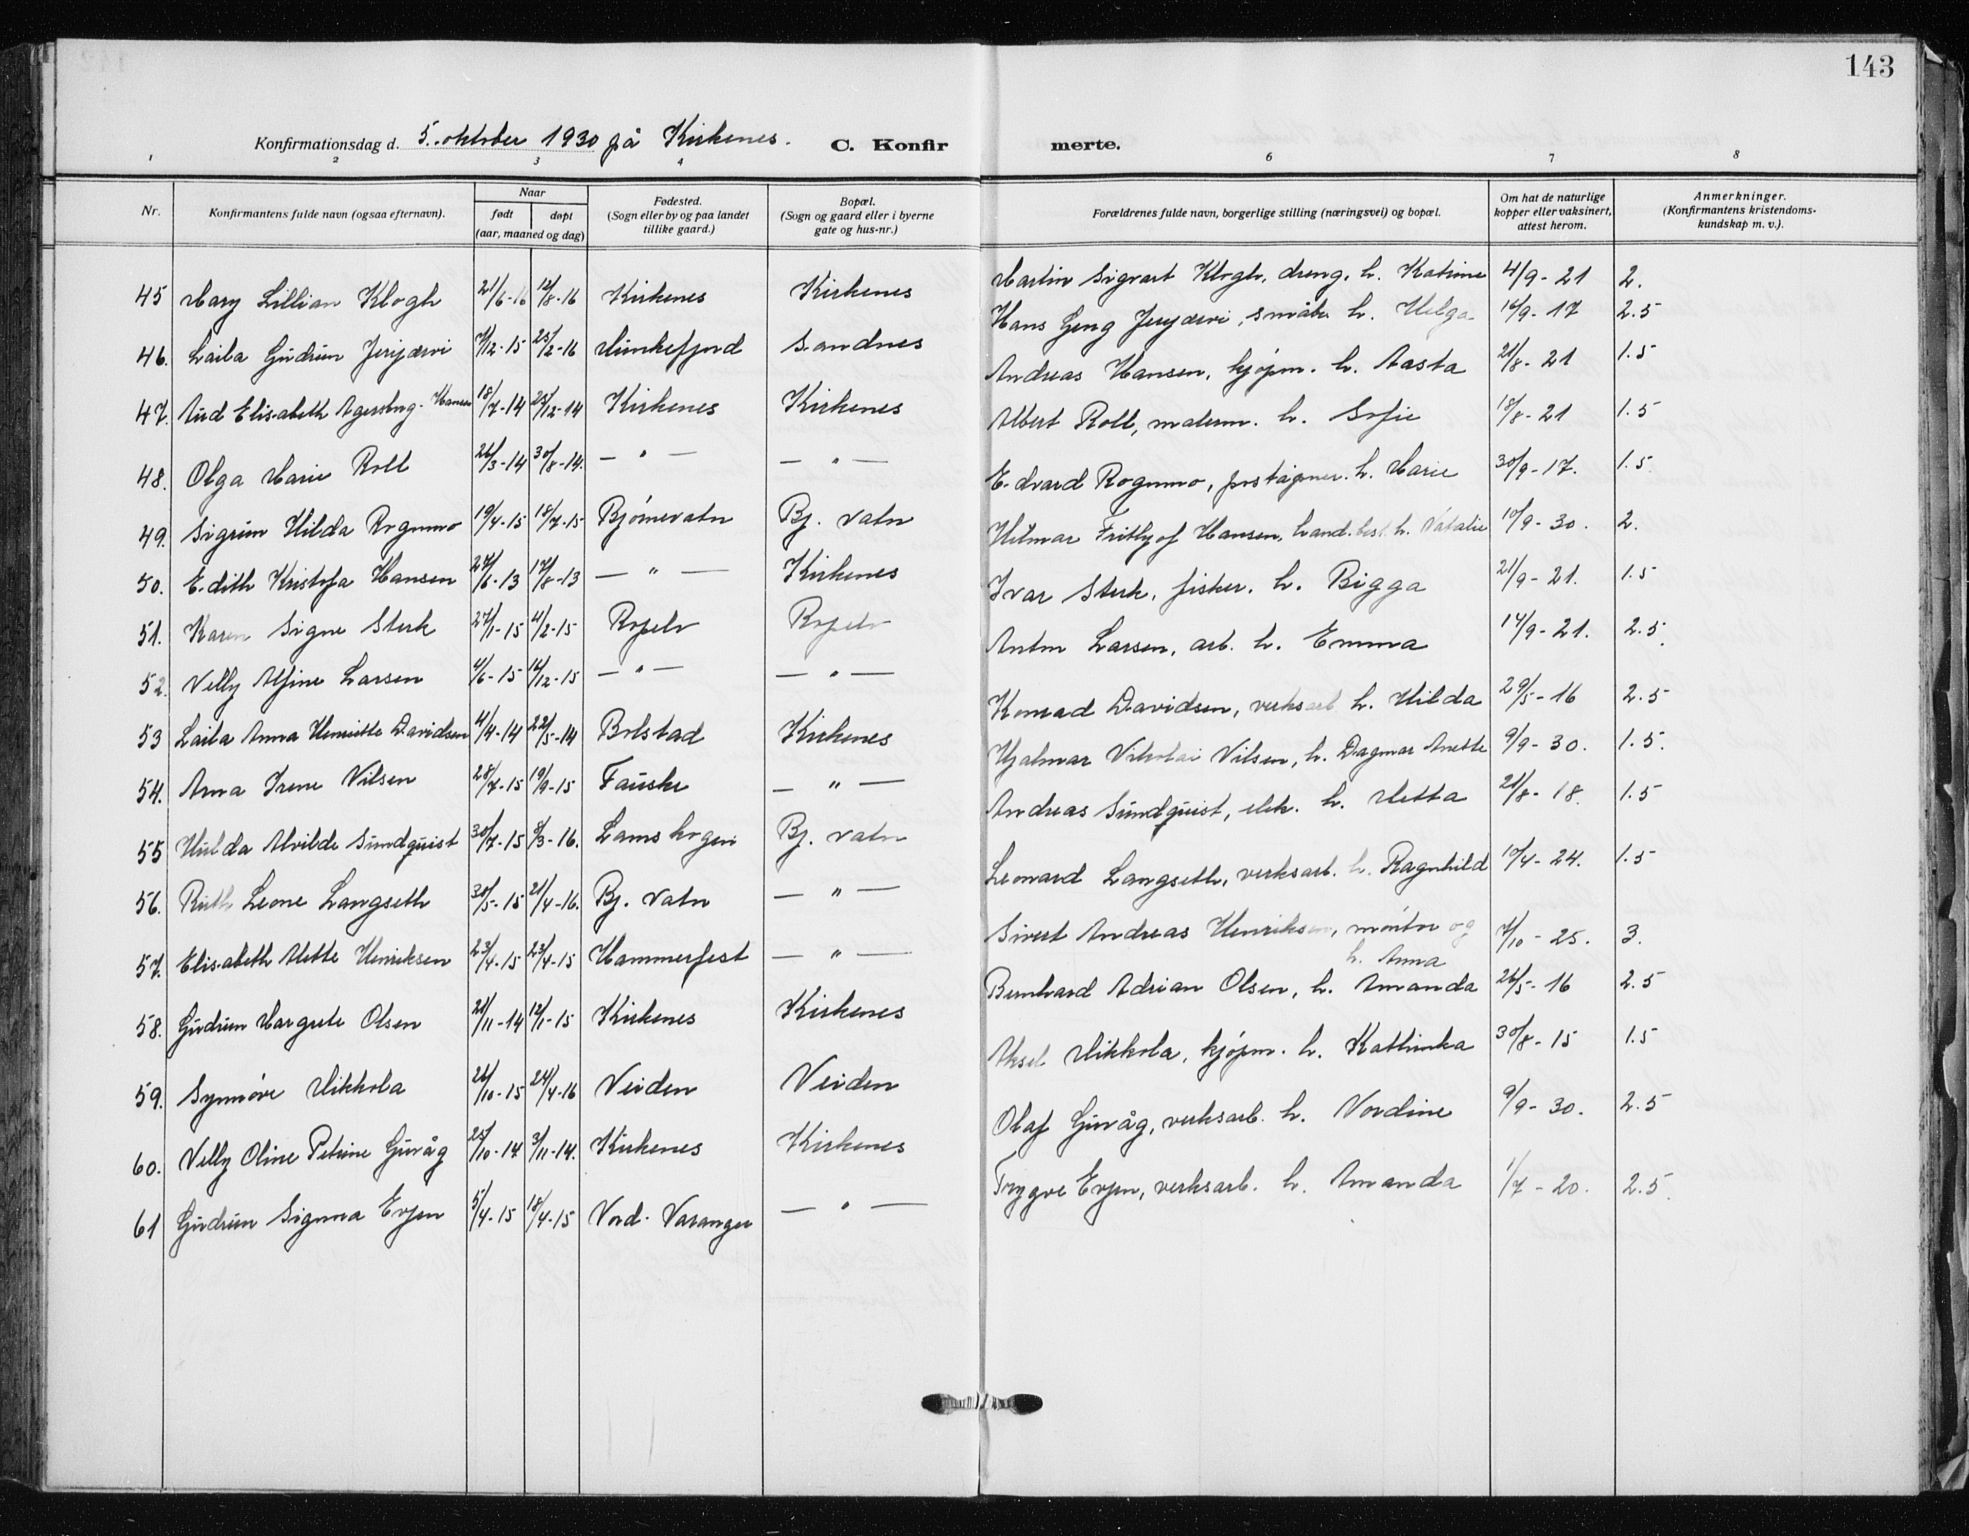 143
Konfirmationsdag d. 5. oktober 1930 på Kirkenes. C. Konfirmerte.
1 2 3 4 6 7 8
Nr. Konfirmantens fulde navn (ogsaa efternavn). Naar født døpt (aar, maaned og dag) Fødested. (Sogn eller by og paa landet tillike gaard.) Bopæl. (Sogn og gaard eller i byerne gate og hus-nr.) Forældrenes fulde navn, borgerlige stilling (næringsvei) og bopæl. Om hat de naturlige kopper eller vaksinert, attest herom. Anmerkninger. (Konfirmantens kristendoms-kundskap m. v.).
45 Mary Lillian Klogh 21/6-16 12/8-16 Kirkenes Kirkenes Martin Sigvart Klogh, dreng, h. Katrine 4/9-21 2.
46. Laila Gudrun Jerijærvi 7/12-15 25/2-16 Munkefjord Sandnes Hans Georg Jerijærvi, småbr. h. Helga 16/9-17 2.5
47. Aud Elisabeth Agersborg-Hansen 18/7-14 25/12-14 Kirkenes Kirkenes Andreas Hansen, kjøpm. h. Aasta 21/8-21 1.5
48. Olga Marie Roll 26/3-14 30/8-14. — " — — " — Albert Roll, malerm. h. Sofie 18/8-21 1.5
49. Sigrun Hilda Rognmo 19/4-15 18/7-15 Bjørnevatn Bj. vatn Edvard Rognmo, poståpner. h. Marie 30/9-17. 1.5.
50. Edith Kristofa Hansen 27/6-13 17/8-13 — " — Kirkenes Hilmar Frithjof Hansen, hand.best. h. Natalie 10/9-30. 2.
51. Karen Signe Sterk 27/1-15 4/2-15 Ropelv Ropelv Ivar Sterk, fisker. h. Bigga 21/9-21. 1.5
52. Nelly Alfine Larsen 4/6-15 14/12-15 — " — — " — Anton Larsen, arb. h. Emma 14/9-21. 2.5.
53 Laila Anna Henriette Davidsen 4/4-14 22/5-14 Bolstad Kirkenes Konrad Davidsen, verksarb. h. Hilda 29/5-16 2.5
54. Anna Irene Nilsen 28/7-15 19/9-15 Fauske — " — Hjalmar Nikolai Nilsen, h. Dagmar Anette 9/9-30. 1.5.
55 Hulda Alvilde Sundquist 30/7-15 8/3-16. Bj. vatn Andreas Sundquist, elek. h. Metta 21/8-18. 1.5
56. Ruth Leone Langseth 30/5-15 21/4-16. Bj. vatn — " — Leonard Langseth, verksarb. h. Ragnhild 17/4-24. 1.5
57. Elisabeth Mette Henriksen 23/4-15 23/4-15 Hammerfest — " — Sivert Andreas Henriksen, montør og 7/10-25. 3.
h. Anna
58. Gudrun Margrete Olsen 21/11-14 12/1-15 Kirkenes Kirkenes Bernhard Adrian Olsen, h. Amanda 26/5-16 2.5
59. Synnøve Mikkola 26/10-15 24/4-16 Neiden Neiden Aksel Mikkola, kjøpm. h. Kathinka 30/8-15 1.5
60. Nelly Oline Petrine Guvåg 25/10-14 3/11-14. Kirkenes Kirkenes Olaf Guvåg, verksarb. h. Nordine 9/9-30. 2.5
61 Gudrun Signora Evjen 5/4-15 18/4-15 Nord-Varanger — " — Trygve Evjen, verksarb. h. Amanda 1/7-20. 2.5.